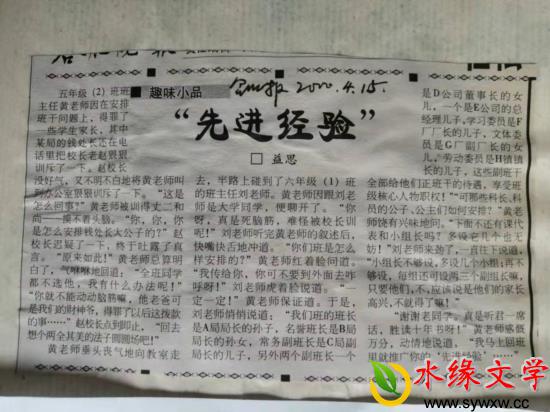 ■ 趣味小品
2000.4.15.
“先进经验”
□ 益思
五年级（2）班班
主任黄老师因在安排
班干问题上，得罪了
一些学生家长，其中
某局的钱处长还在电
话里把校长老赵狠狠
训斥了一下。赵校长
没好气，又不明白地将黄老师叫
到办公室狠狠训斥了一下。“这是
怎么回事？”黄老师被训得丈二和
尚——摸不着头脑。“你，你，你
是怎么安排钱处长大公子的？”赵
校长迟疑了一下，终于吐露了真
言。“原来如此！”黄老师总算明
白了，气咻咻地回道：“全班同学
都不选他，我有什么办法呢！”
“你就不能动动脑筋嘛，他老爸可
是我们的财神爷，得罪了以后这拨款
的事……”赵校长点到即止，“回去
想个两全其美的法子圆圆场吧！”
黄老师垂头丧气地向教室走
去，半路上碰到了六年级（1）班
的班主任刘老师。黄老师因跟刘老
师是大学同学，便聊开了。“你
呀，真是死脑筋，难怪被校长训
呢！”刘老师听完黄老师的叙述后，
快嘴快舌地冲道。“你们班是怎么
样安排的？”黄老师红着脸问道。
“我传给你，你可不要到外面去咋
呼呀！”刘老师虎着脸说道。“一
定一定！”黄老师保证道。于是，
刘老师悄悄说道：“我们班的班长
是A局局长的孙子，名誉班长是B局
局长的孙女，常务副班长是C局副
局长的儿子，另外两个副班长一个
是D公司董事长的女
儿，一个是E公司的总
经理儿子，学习委员是F
厂厂长的儿子，文体委
员是G厂副厂长的女
儿，劳动委员是H镇镇
长的儿子，这些副班干
全部给他们正班干的待遇，享受班
级核心人物职权！”“可那些科长、科
员的公子、公主们如何安排？”黄老
师饶有兴味地问。“下面不还有课代
表和小组长吗？多设它几个也无
妨！”刘老师来劲了，一直往下说道，
“小组长不够设，多设几个小组；再不
够设，每组还可设两三个副组长嘛，
只要他们，不，应该说是他们的家长
高兴，不就得了嘛！”
“谢谢老同学。真是听君一席
话，胜读十年书呀！”黄老师感慨
万分，动情地说道，“我马上回班
里就推广你的‘先进经验’……”
水缘文学
www.sywxw.cc